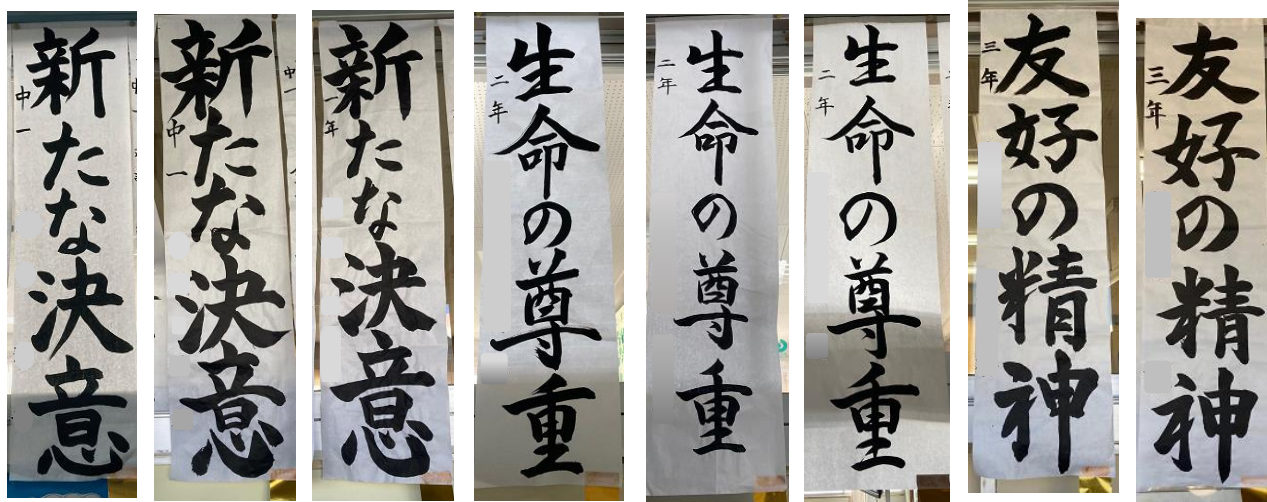 新たな決意
中一
新たな決意
中一
新たな決意
一年
生命の尊重
二年
生命の尊重
二年
生命の尊重
二年
友好の精神
三年
友好の精神
三年